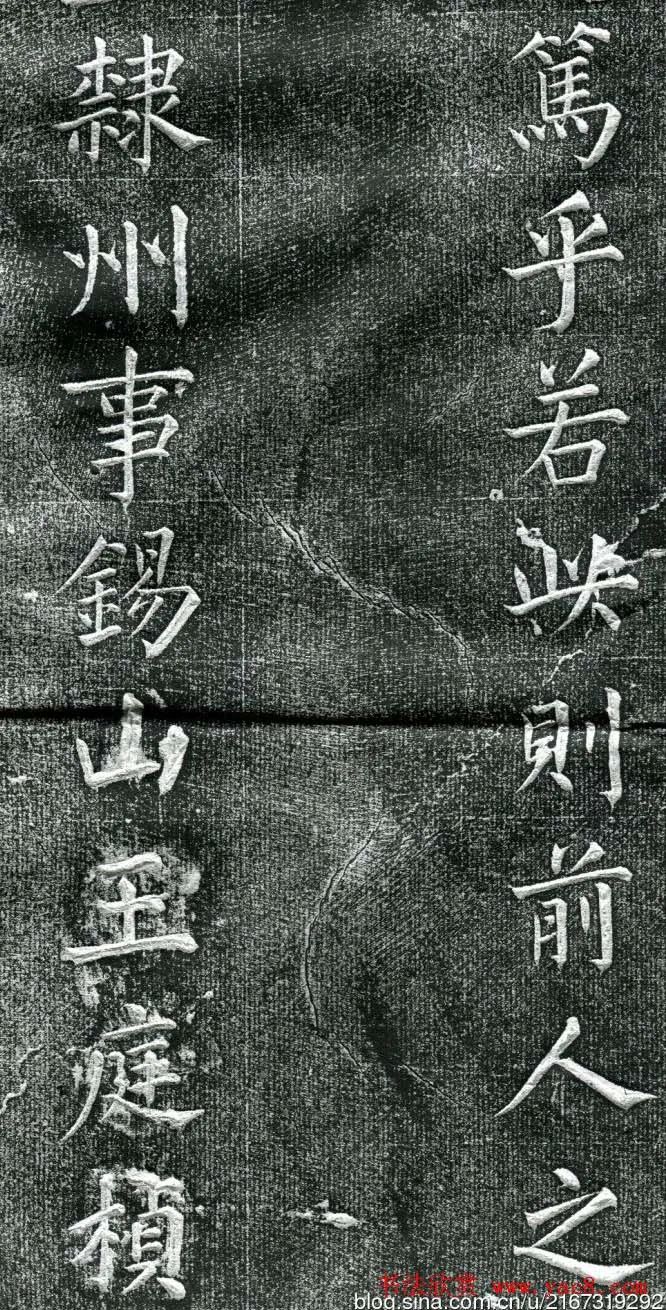 篤乎若則前人之
隸州事錫山王庭楨
书法欣赏 www.yac8.com
blog.sina.com.cn/u/2167319292